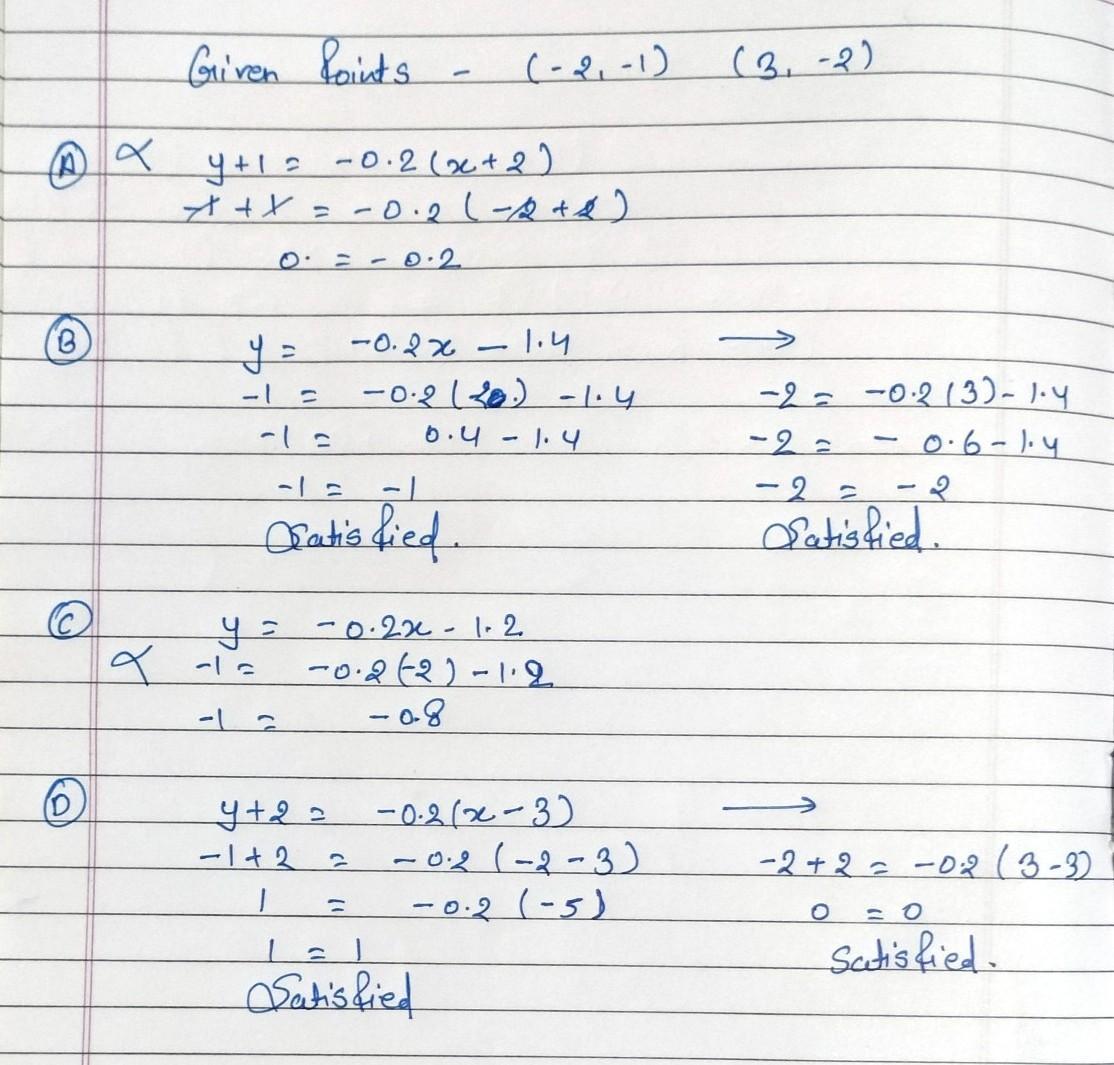 Given Points - (-2, -1) (3, -2)
(A) x y+1 = -0.2(x+2)
-1 + 1 = -0.2 (-2+2)
0. = -0.2
(B) y = -0.2x - 1.4 →
-1 = -0.2( ) -1.4 -2 = -0.2(3)-1.4
-1 = 0.4 - 1.4 -2 = - 0.6-1.4
-1 = -1 -2 = -2
Satisfied. Satisfied.
(C) y = -0.2x - 1.2
x -1 = -0.2(-2) -1.2
-1 = -0.8
(D) y+2 = -0.2(x-3) →
-1+2 = -0.2 (-2-3) -2+2 = -0.2 (3-3)
1 = -0.2 (-5) 0 = 0
1 = 1 Satisfied.
Satisfied